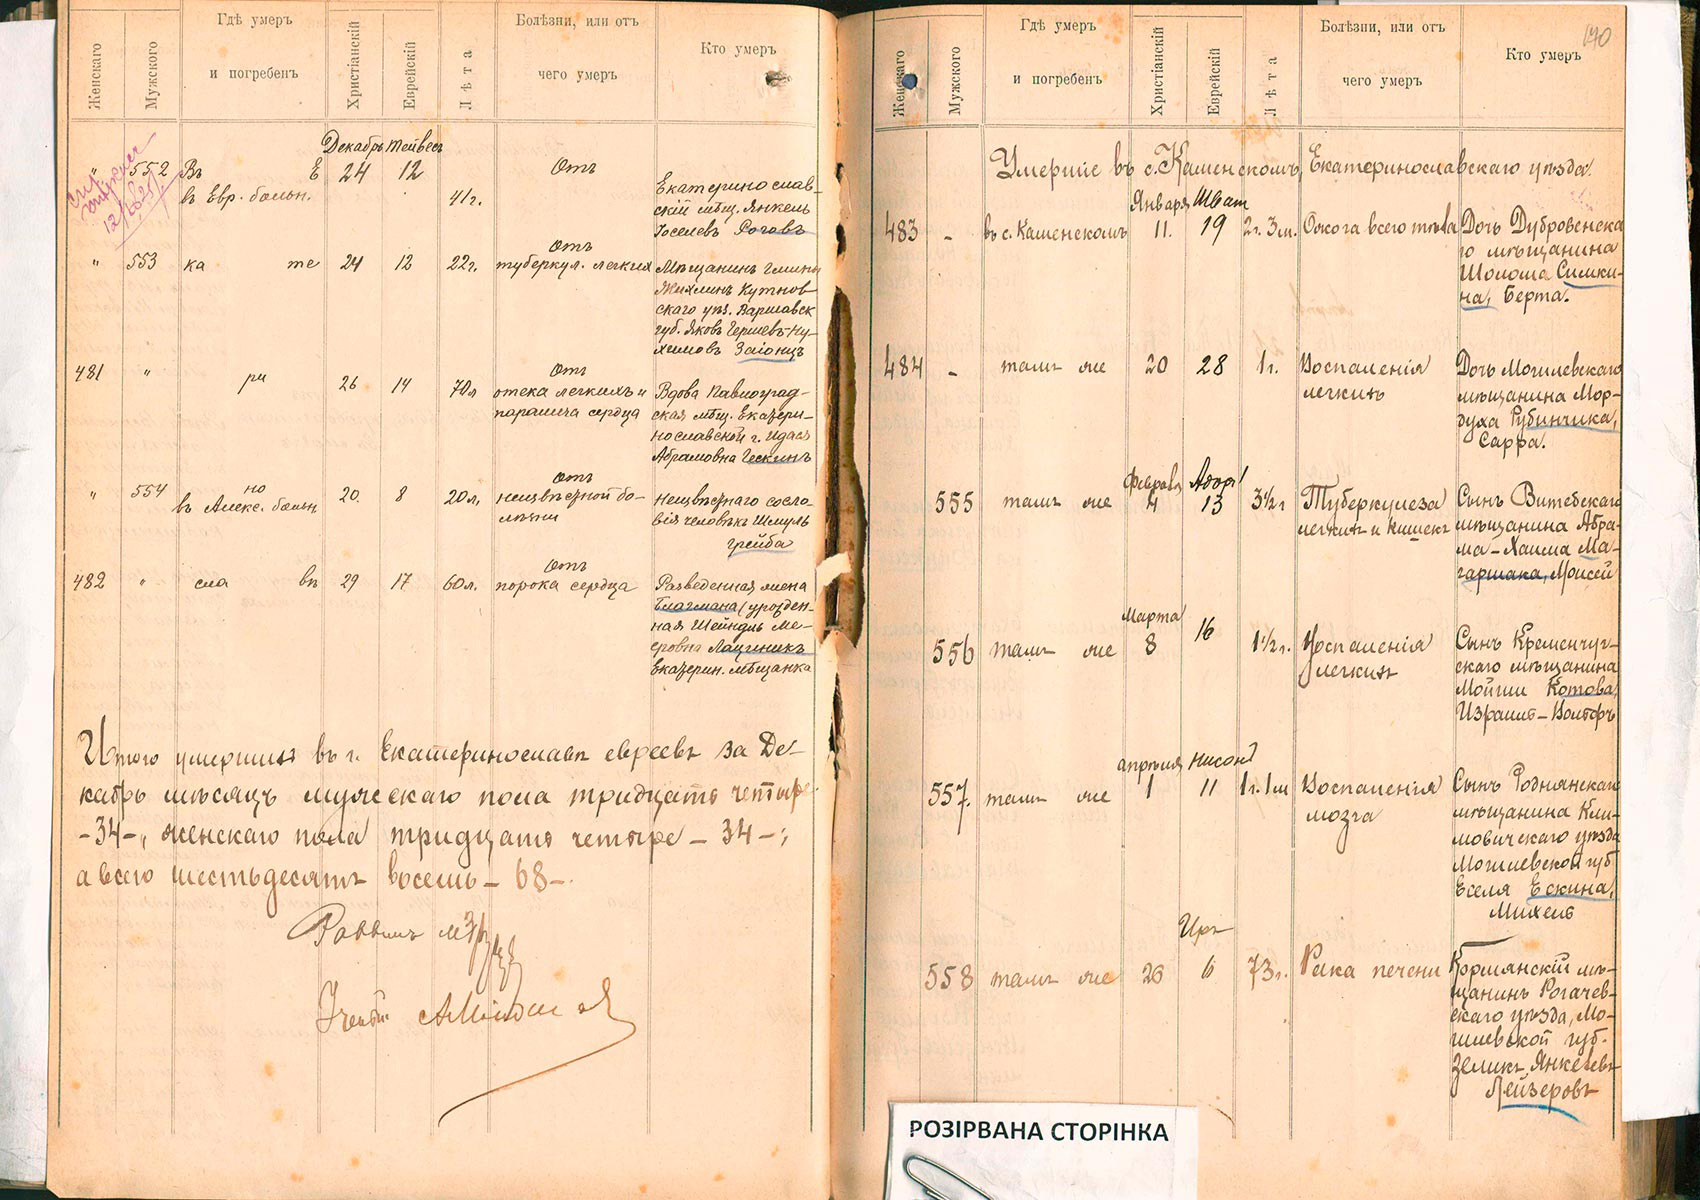 Женскаго
Мужского
Гдѣ умеръ
и погребенъ
Христіанскій
Еврейскій
Лѣта
Болѣзни, или отъ
чего умеръ
Кто умеръ
Декабрь Тейвесъ
" 552 Въ Е 24 12 Отъ
въ Евр. больн. 41 г.
Екатеринослав-
скій мѣщ. Янкель
Іоселевъ Роговъ
12/
" 553 ка те 24 12 22 г.
Отъ
туберкул. легкихъ
Мѣщанинъ гмины
Жихлинъ Кутнов
скаго уѣз. Варшавск
губ. Яковъ Гершевъ-Ну-
химовъ Заіонцъ
481 " ри 26 14 70 л
Отъ
отека легкихъ и
паралича сердца
Вдова Павлоград-
ская мѣщ. Екатери-
нославской г.
Абрамовна Гескинъ
" 554 но 20. 8 20 л.
въ Алекс. больн
Отъ
неизвѣстной бо-
лѣзни
неизвѣстнаго сосло-
вія человѣкъ Шмуль
Грейба
482 " сла вѣ 29 17 60 л.
Отъ
порока сердца
Разведенная жена
Глагмана (урожден-
ная Шейндль Ме-
еровна Лацинникъ
Екатерин. мѣщанка
Итого умершихъ въ г. Екатеринославѣ евреевъ за Де-
кабрь мѣсяцъ мужескаго пола тридцать четыре
-34-, женскаго пола тридцать четыре - 34 -;
а всего шестьдесятъ восемь - 68 -.
Раввинъ
140
Женскаго
Мужского
Гдѣ умеръ
и погребенъ
Христіанскій
Еврейскій
Лѣта
Болѣзни, или отъ
чего умеръ
Кто умеръ
Умершіе въ с. Каменскомъ, Екатеринославскаго уѣзда.
Января Шват
483 - въ с. Каменскомъ 11. 19 2 г. 3 м. Ожога всего тѣла
Дочь Дубровенска
го мѣщанина
Шолома Симки-
на, Берта.
484 - тамъ же 20 28 1 г. Воспаленія
легкихъ
Дочь Могилевскаго
мѣщанина Мор-
духа Рубинчика,
Сарра.
Февраля Адаръ
555 тамъ же 4 13 3½ г Туберкулеза
легкихъ и кишекъ
Сынъ Витебскаго
мѣщанина Абра-
ма-Хаима Ма-
гаршака, Моисей
Марта
556 тамъ же 8 16 1½ г. Воспаленія
легкихъ
Сынъ Кременчуг-
скаго мѣщанина
Мойши Котова,
Израиль-Вольфъ
апрѣля Нисонъ
557. тамъ же 1 11 1 г. 1 м Воспаленія
мозга
Сынъ Роднянскаго
мѣщанина Кли-
мовичскаго уѣзда
Могилевской губ
Еселя Ескина,
Михель
Иръ
558 тамъ же 26 6 73 г. Рака печени
Кормянскій мѣ-
щанинъ Рогачев-
скаго уѣзда, Мо-
гилевской губ.
Зеликъ Янкелевъ
Лейзеровъ
РОЗІРВАНА СТОРІНКА